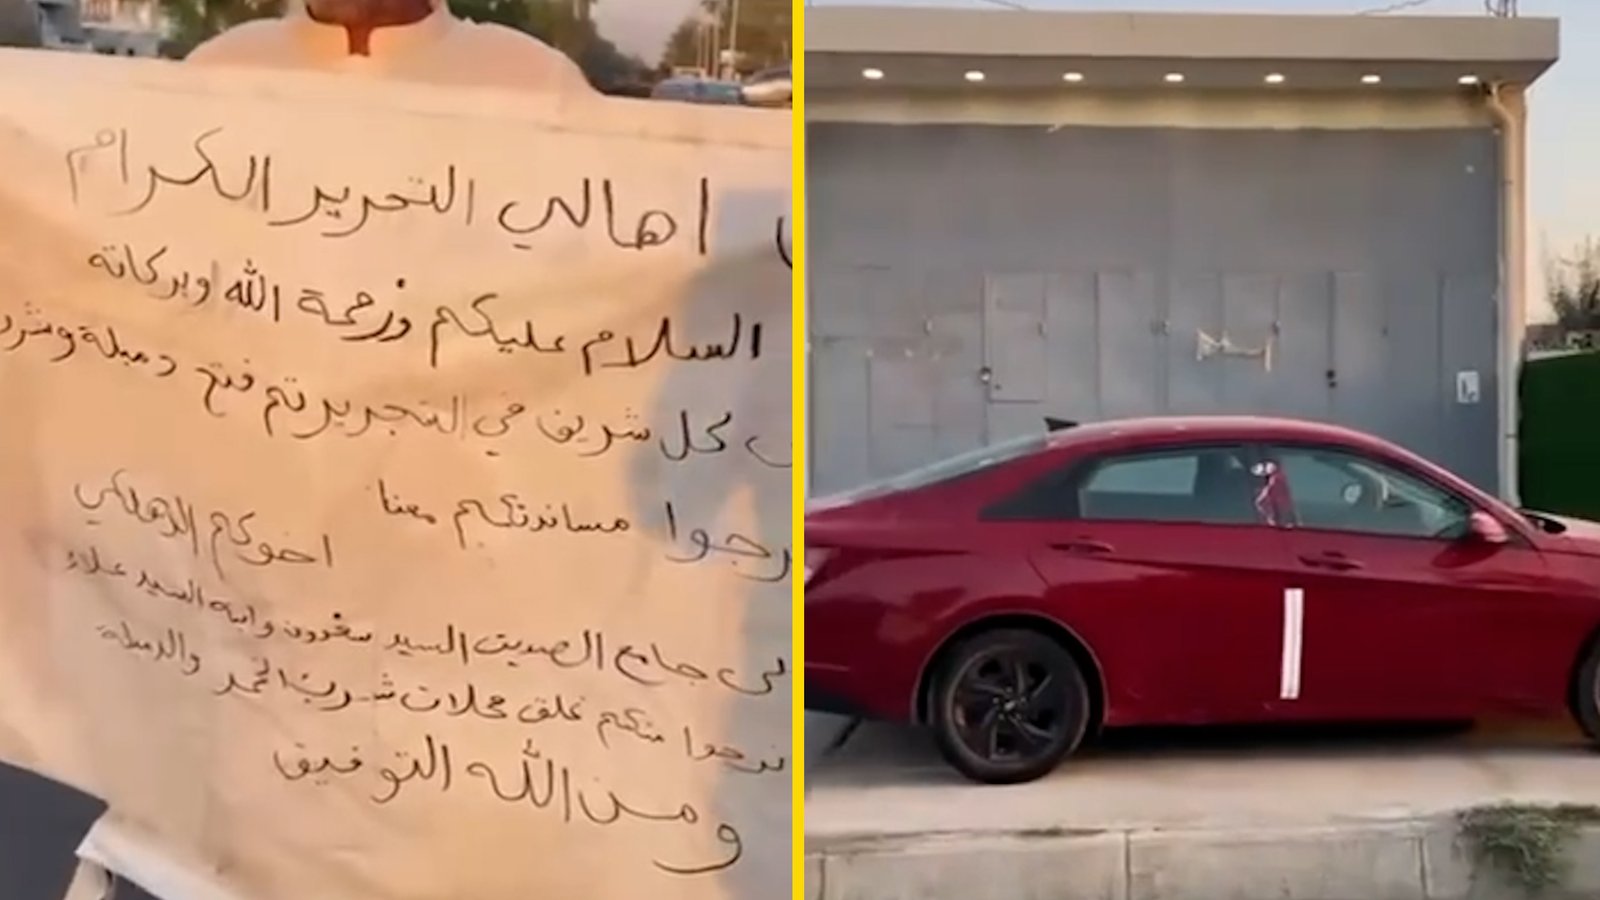 اهالي التحرير الكرام
السلام عليكم ورحمة الله اوبركاتة
كل شريف في التحرير تم فتح دمبلة وشرب
نرجوا مساندتكم معنا
اخوكم الدهلكي
جامع الصديق السيد سعدون وابنه السيد علاء
نرجوا منكم غلق محلات شرب الخمر والدمبلة
ومن الله التوفيق